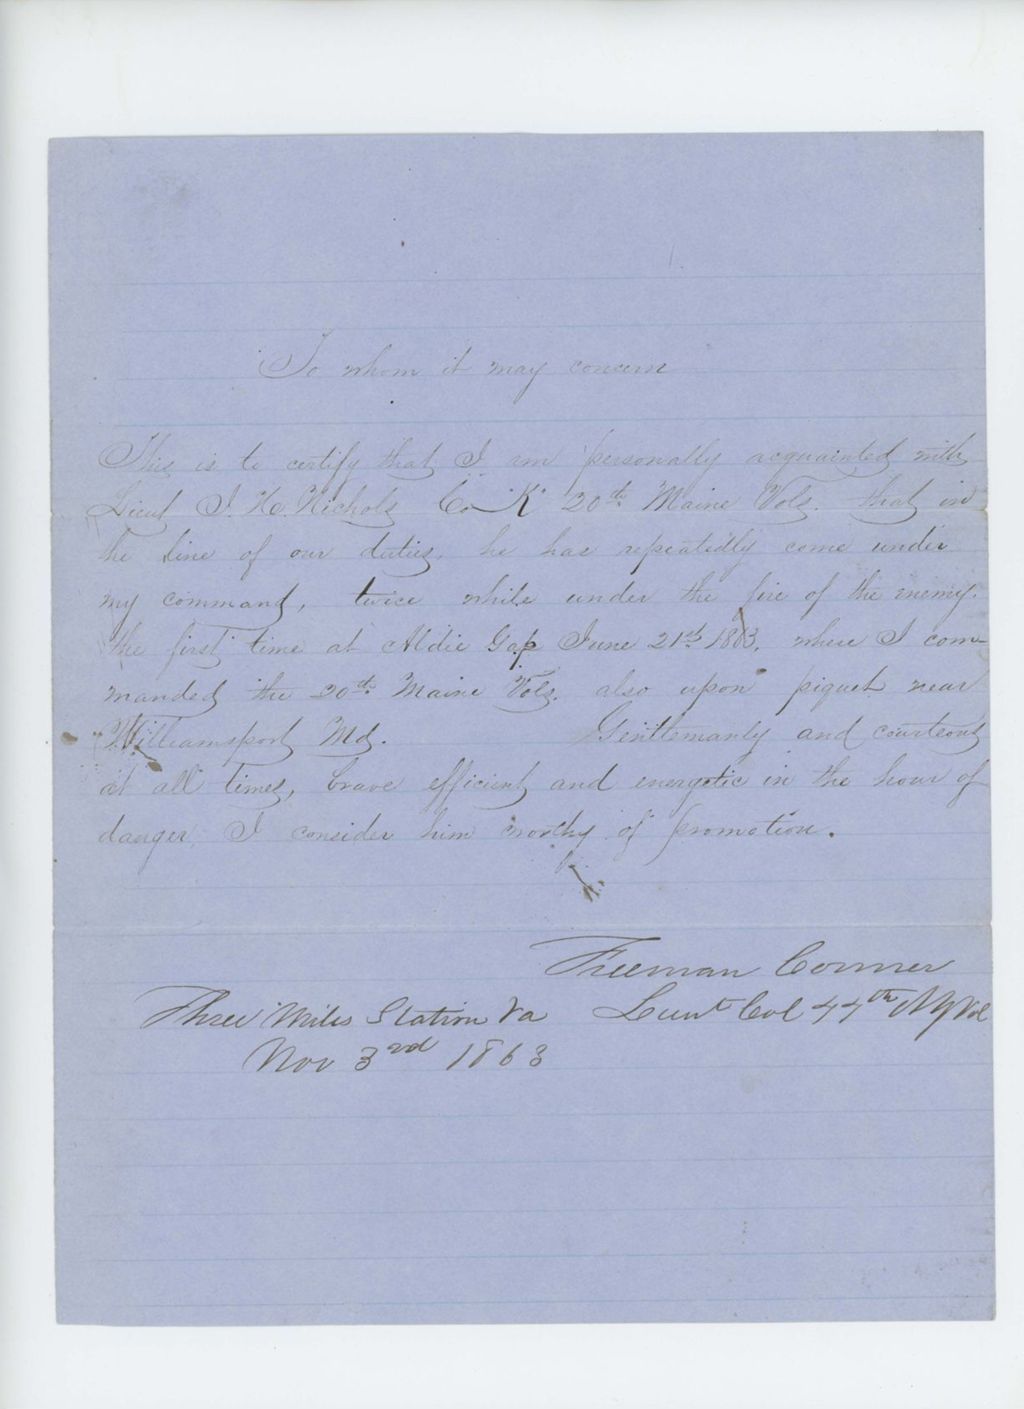 To whom it may concern
This is to certify that I am personally acquainted with
Lieut J. H. Nichols Co "K" 20th Maine Vols. that in
the line of our duties, he has repeatedly come under
my command, twice while under the fire of the enemy.
the first time at Aldie Gap June 21st 1863, where I com-
manded the 20th Maine Vols. also upon piquet near
Williamsport Md. Gentlemanly and courteous
at all times, brave efficient and energetic in the hour of
danger, I consider him worthy of promotion.
Freeman Conner
Lieut Col 44th NY Vol
Three Miles Station Va
Nov 3rd 1863